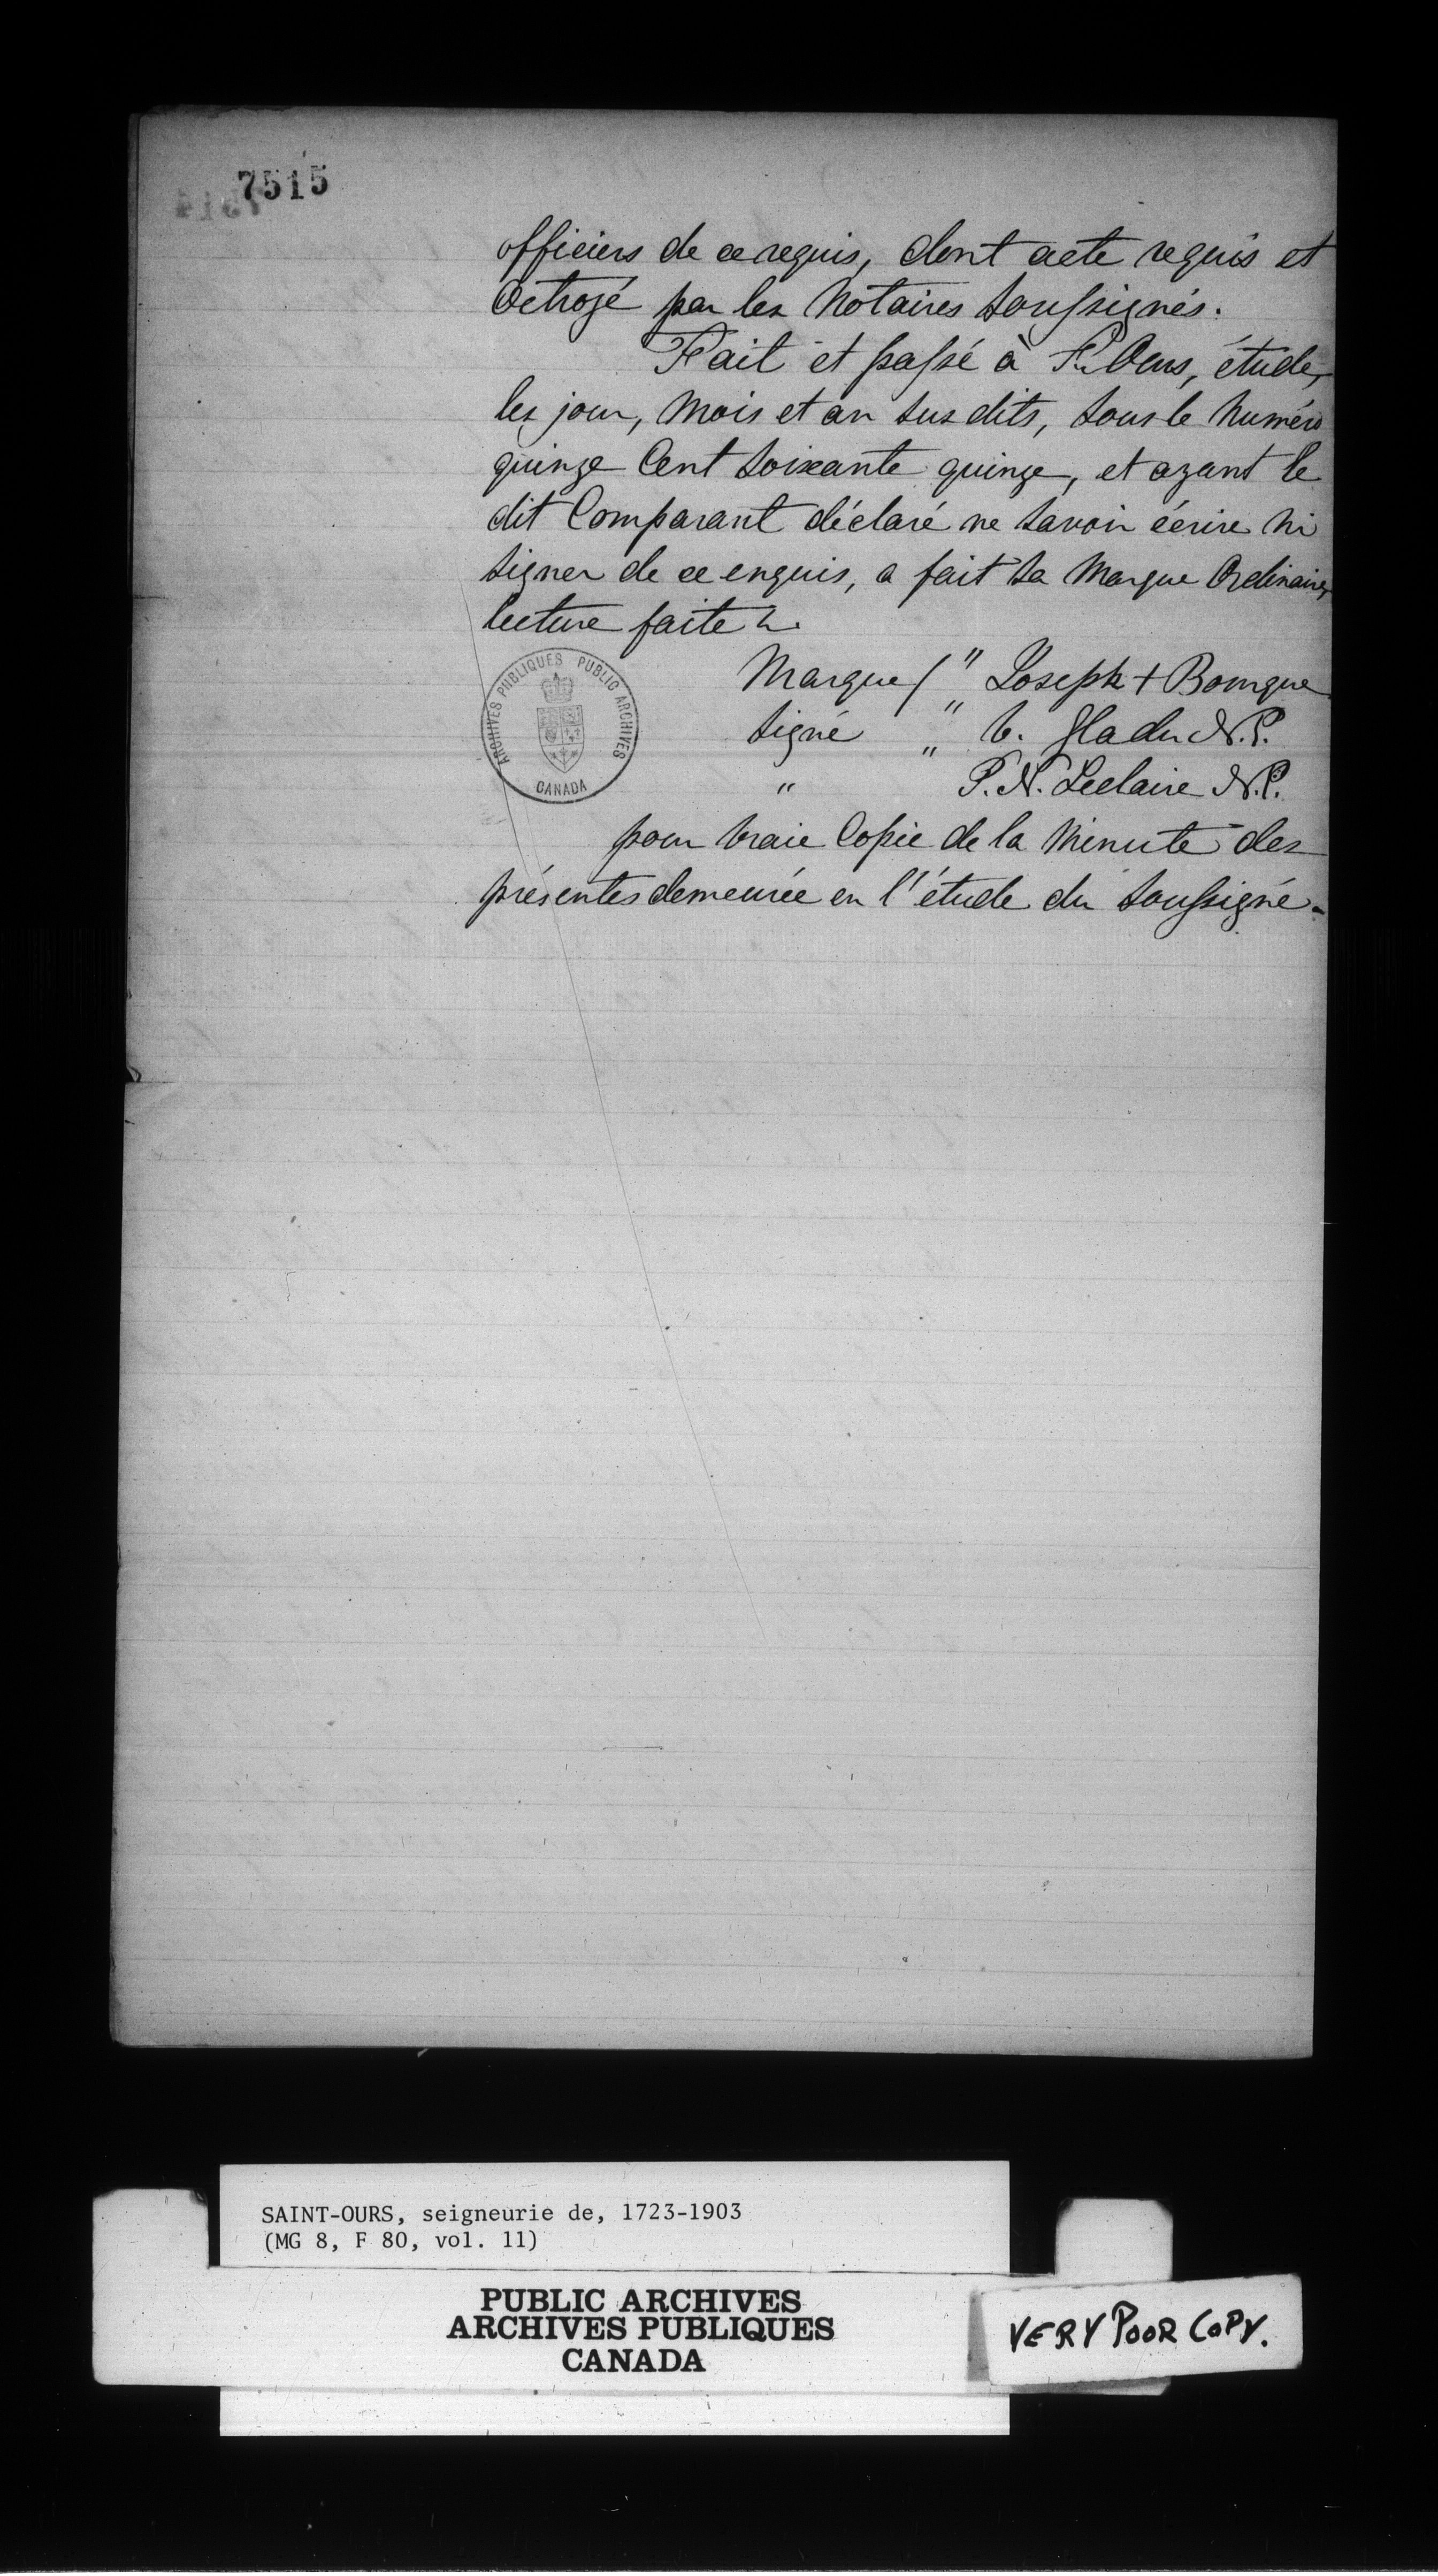 7515
officiers de ce requis, dont acte requis et
Octroyé par les Notaires soussignés.
Fait et passé à St. Ours, étude,
les jour, mois et an susdits, sous le numéro
quinze Cent soixante quinze, et ayant le
dit Comparant déclaré ne savoir écrire ni
signer de ce enquis, a fait sa marque Ordinaire,
lecture faite
Marque / " Joseph + Bourque
signé " " V. Gladu N.P.
" " P. N. Leclaire N.P.
pour vraie Copie de la Minute des
présentes demeurée en l'étude du soussigné.
ARCHIVES PUBLIQUES PUBLIC ARCHIVES
CANADA
SAINT-OURS, seigneurie de, 1723-1903
(MG 8, F 80, vol. 11)
PUBLIC ARCHIVES
ARCHIVES PUBLIQUES
CANADA
VERY POOR COPY.